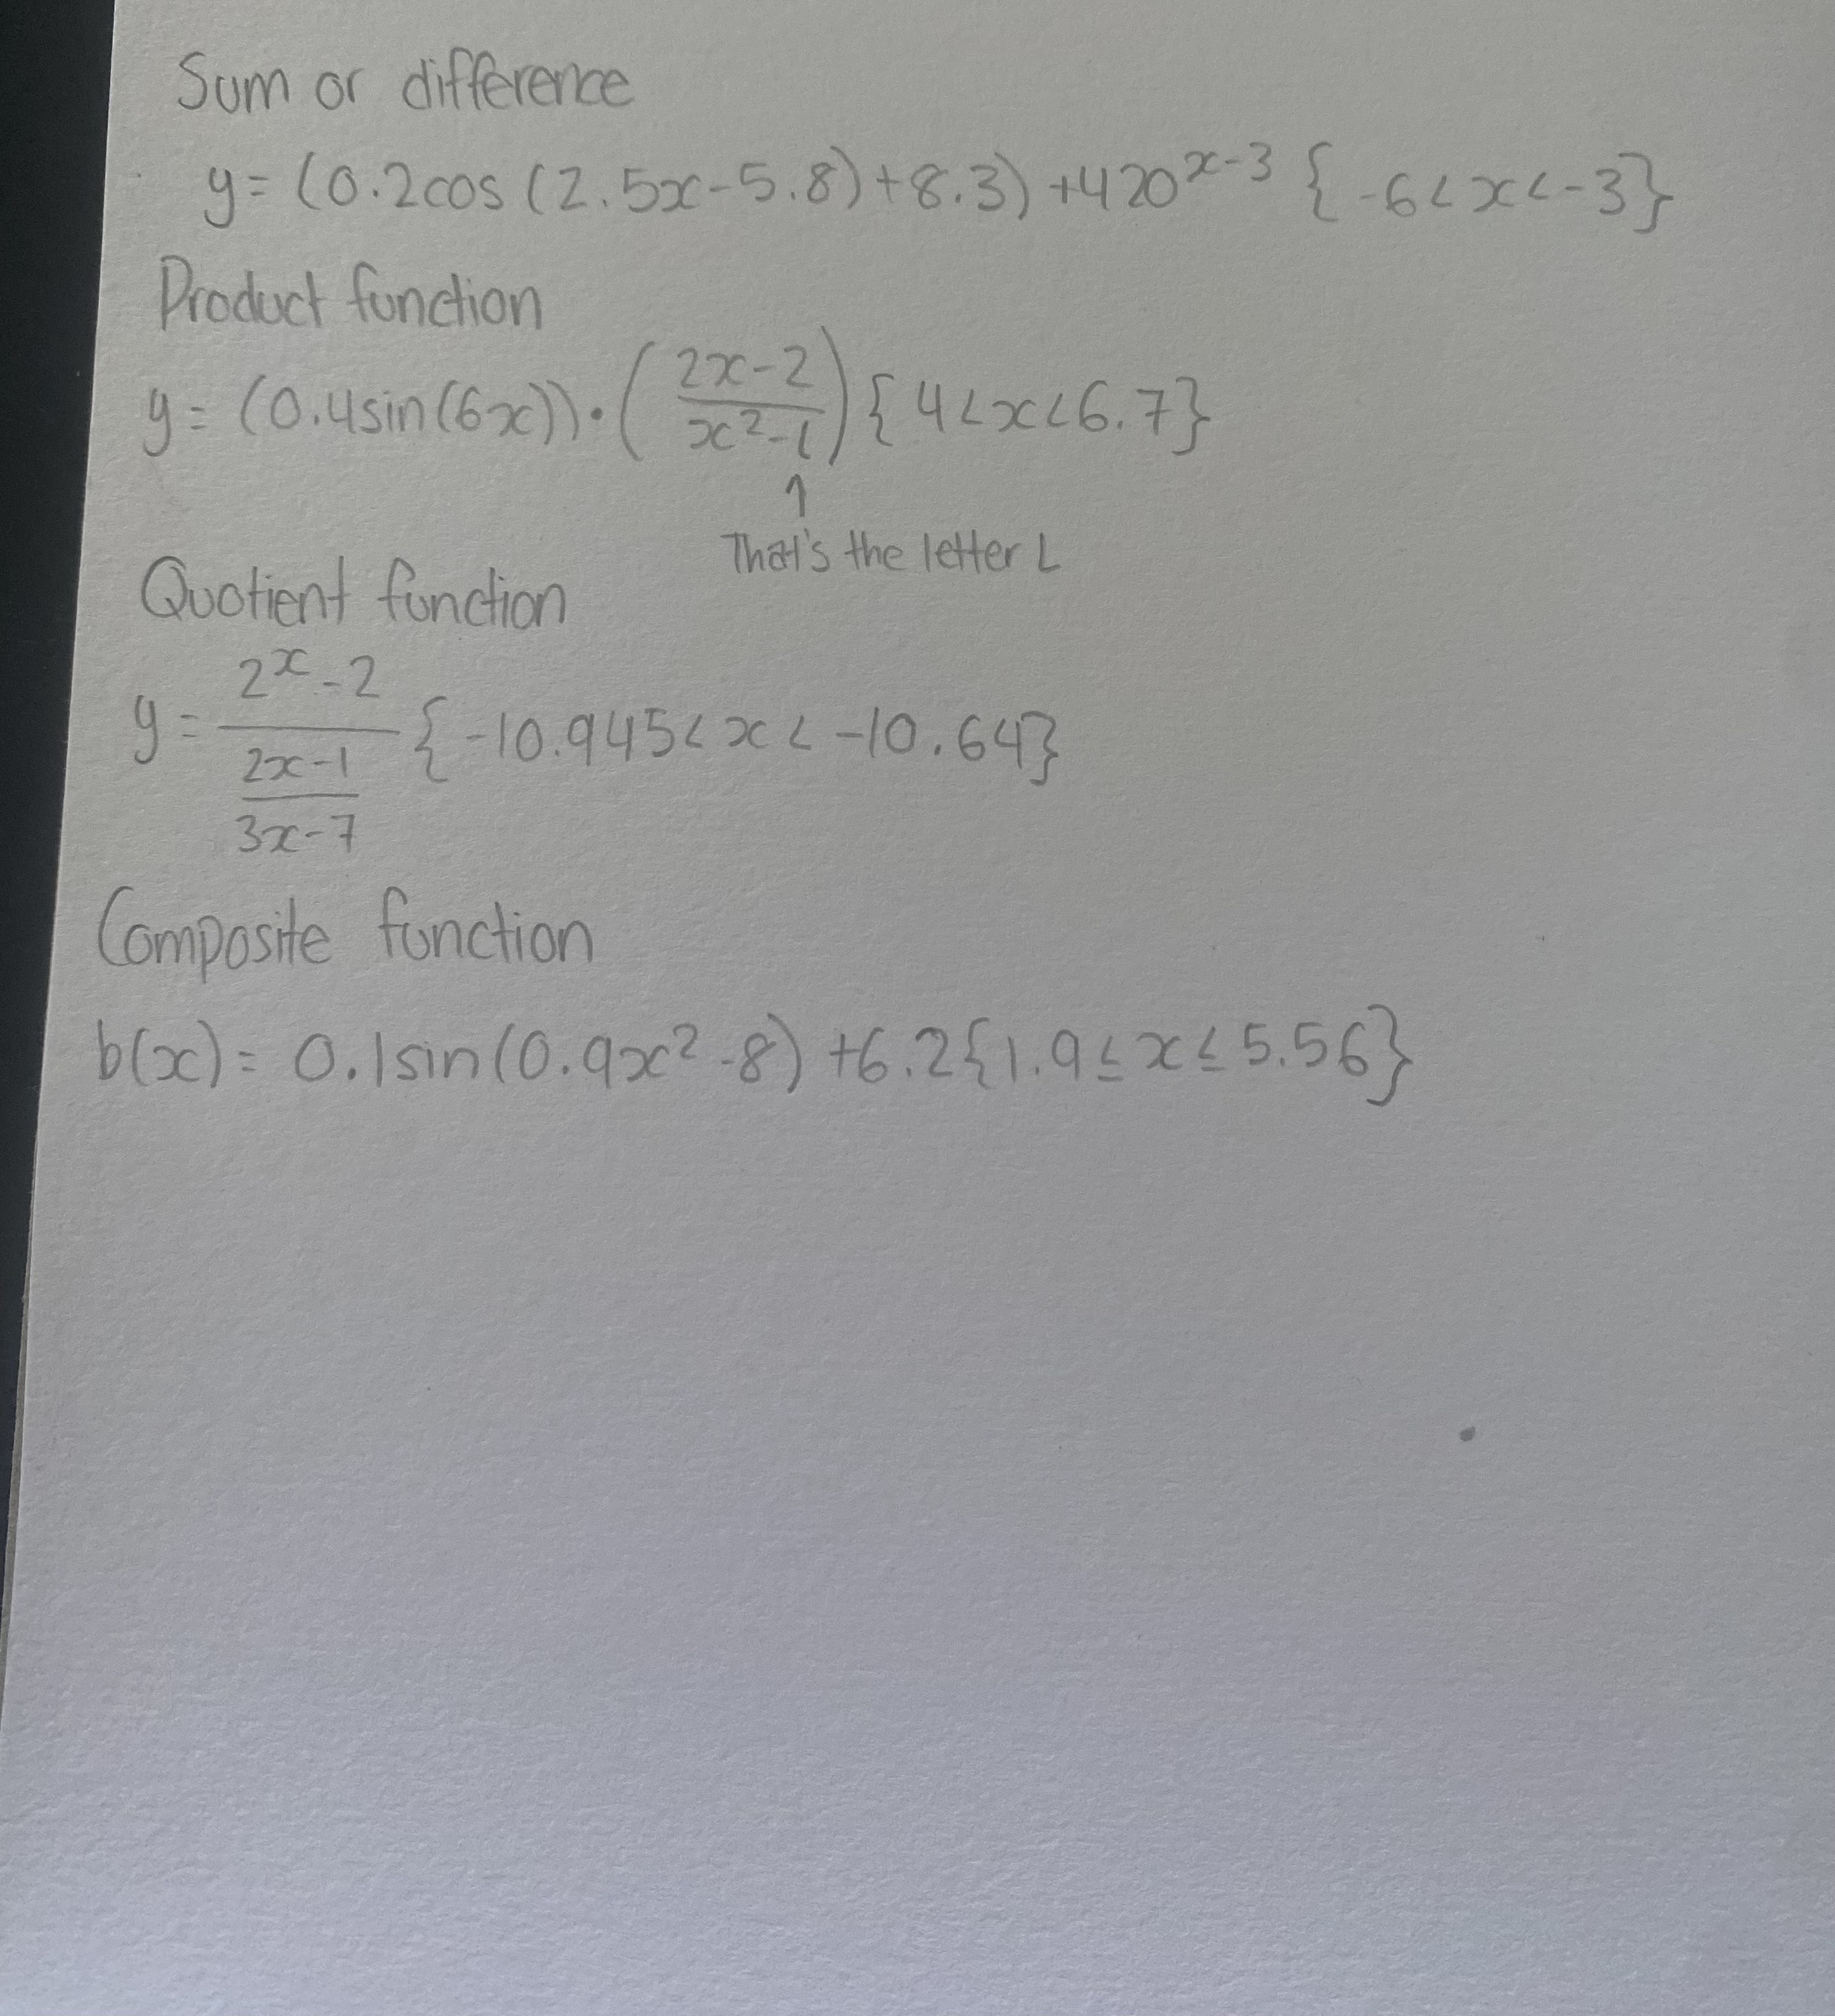 Sum or difference
y = (0.2cos(2.5x-5.8)+8.3)+420^{x-3} {-6<x<-3}
Product function
y = (0.4sin(6x))•(\frac{2x-2}{x^2-l}) {4<x<6.7}
↑
That's the letter L
Quotient function
y = \frac{2^x-2}{\frac{2x-1}{3x-7}} {-10.945<x<-10.64}
Composite function
b(x) = 0.1sin(0.9x^2-8)+6.2{1.9≤x≤5.56}